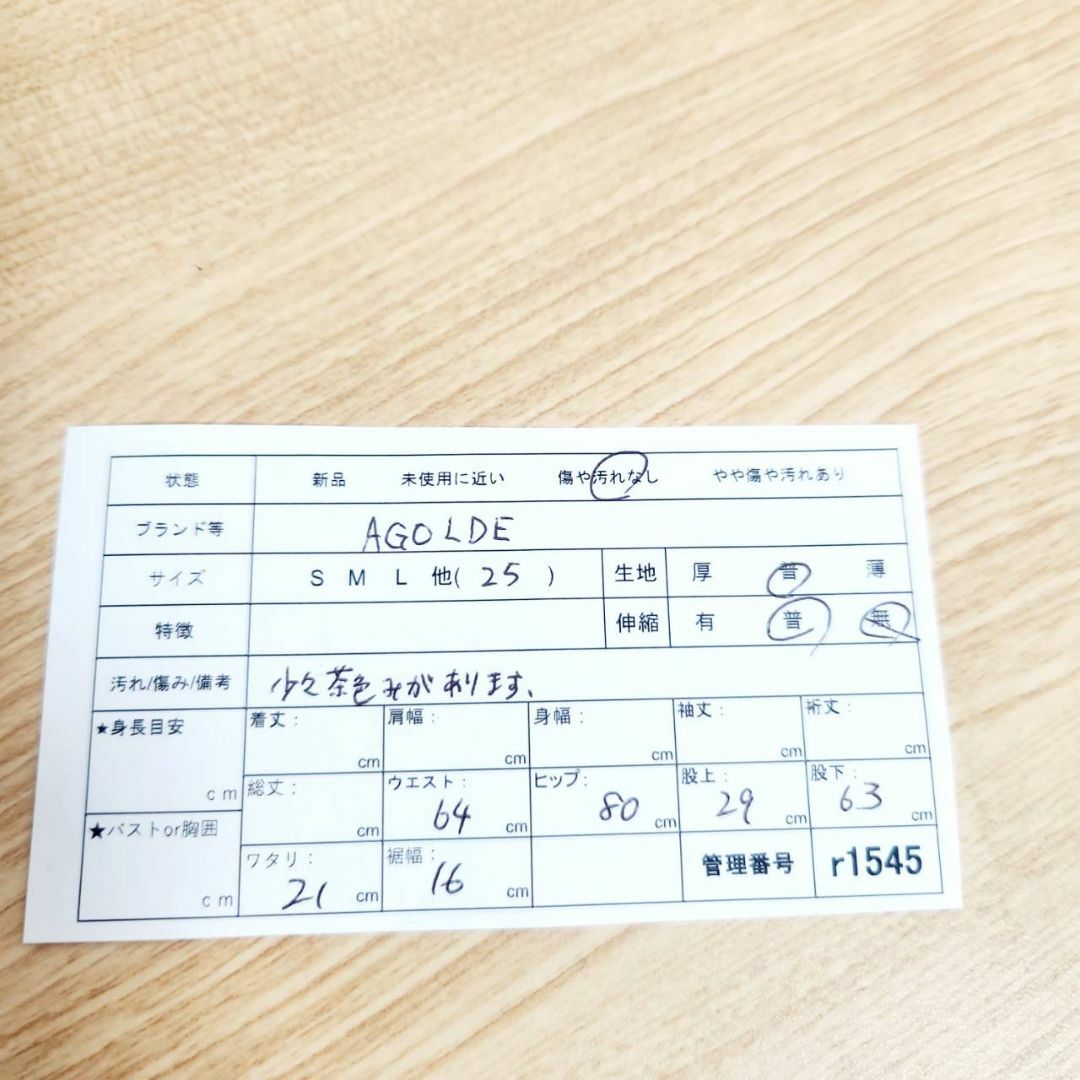 状態 新品 未使用に近い 傷や汚れなし やや傷や汚れあり
ブランド等 AGOLDE
サイズ S M L 他( 25 ) 生地 厚 普 薄
特徴 伸縮 有 普 無
汚れ/傷み/備考 少々茶色みがあります、
★身長目安 cm 着丈: cm 肩幅: cm 身幅: cm 袖丈: cm 裄丈: cm
総丈: cm ウエスト: 64 cm ヒップ: 80 cm 股上: 29 cm 股下: 63 cm
★バストor胸囲 cm ワタリ: 21 cm 裾幅: 16 cm 管理番号 r1545